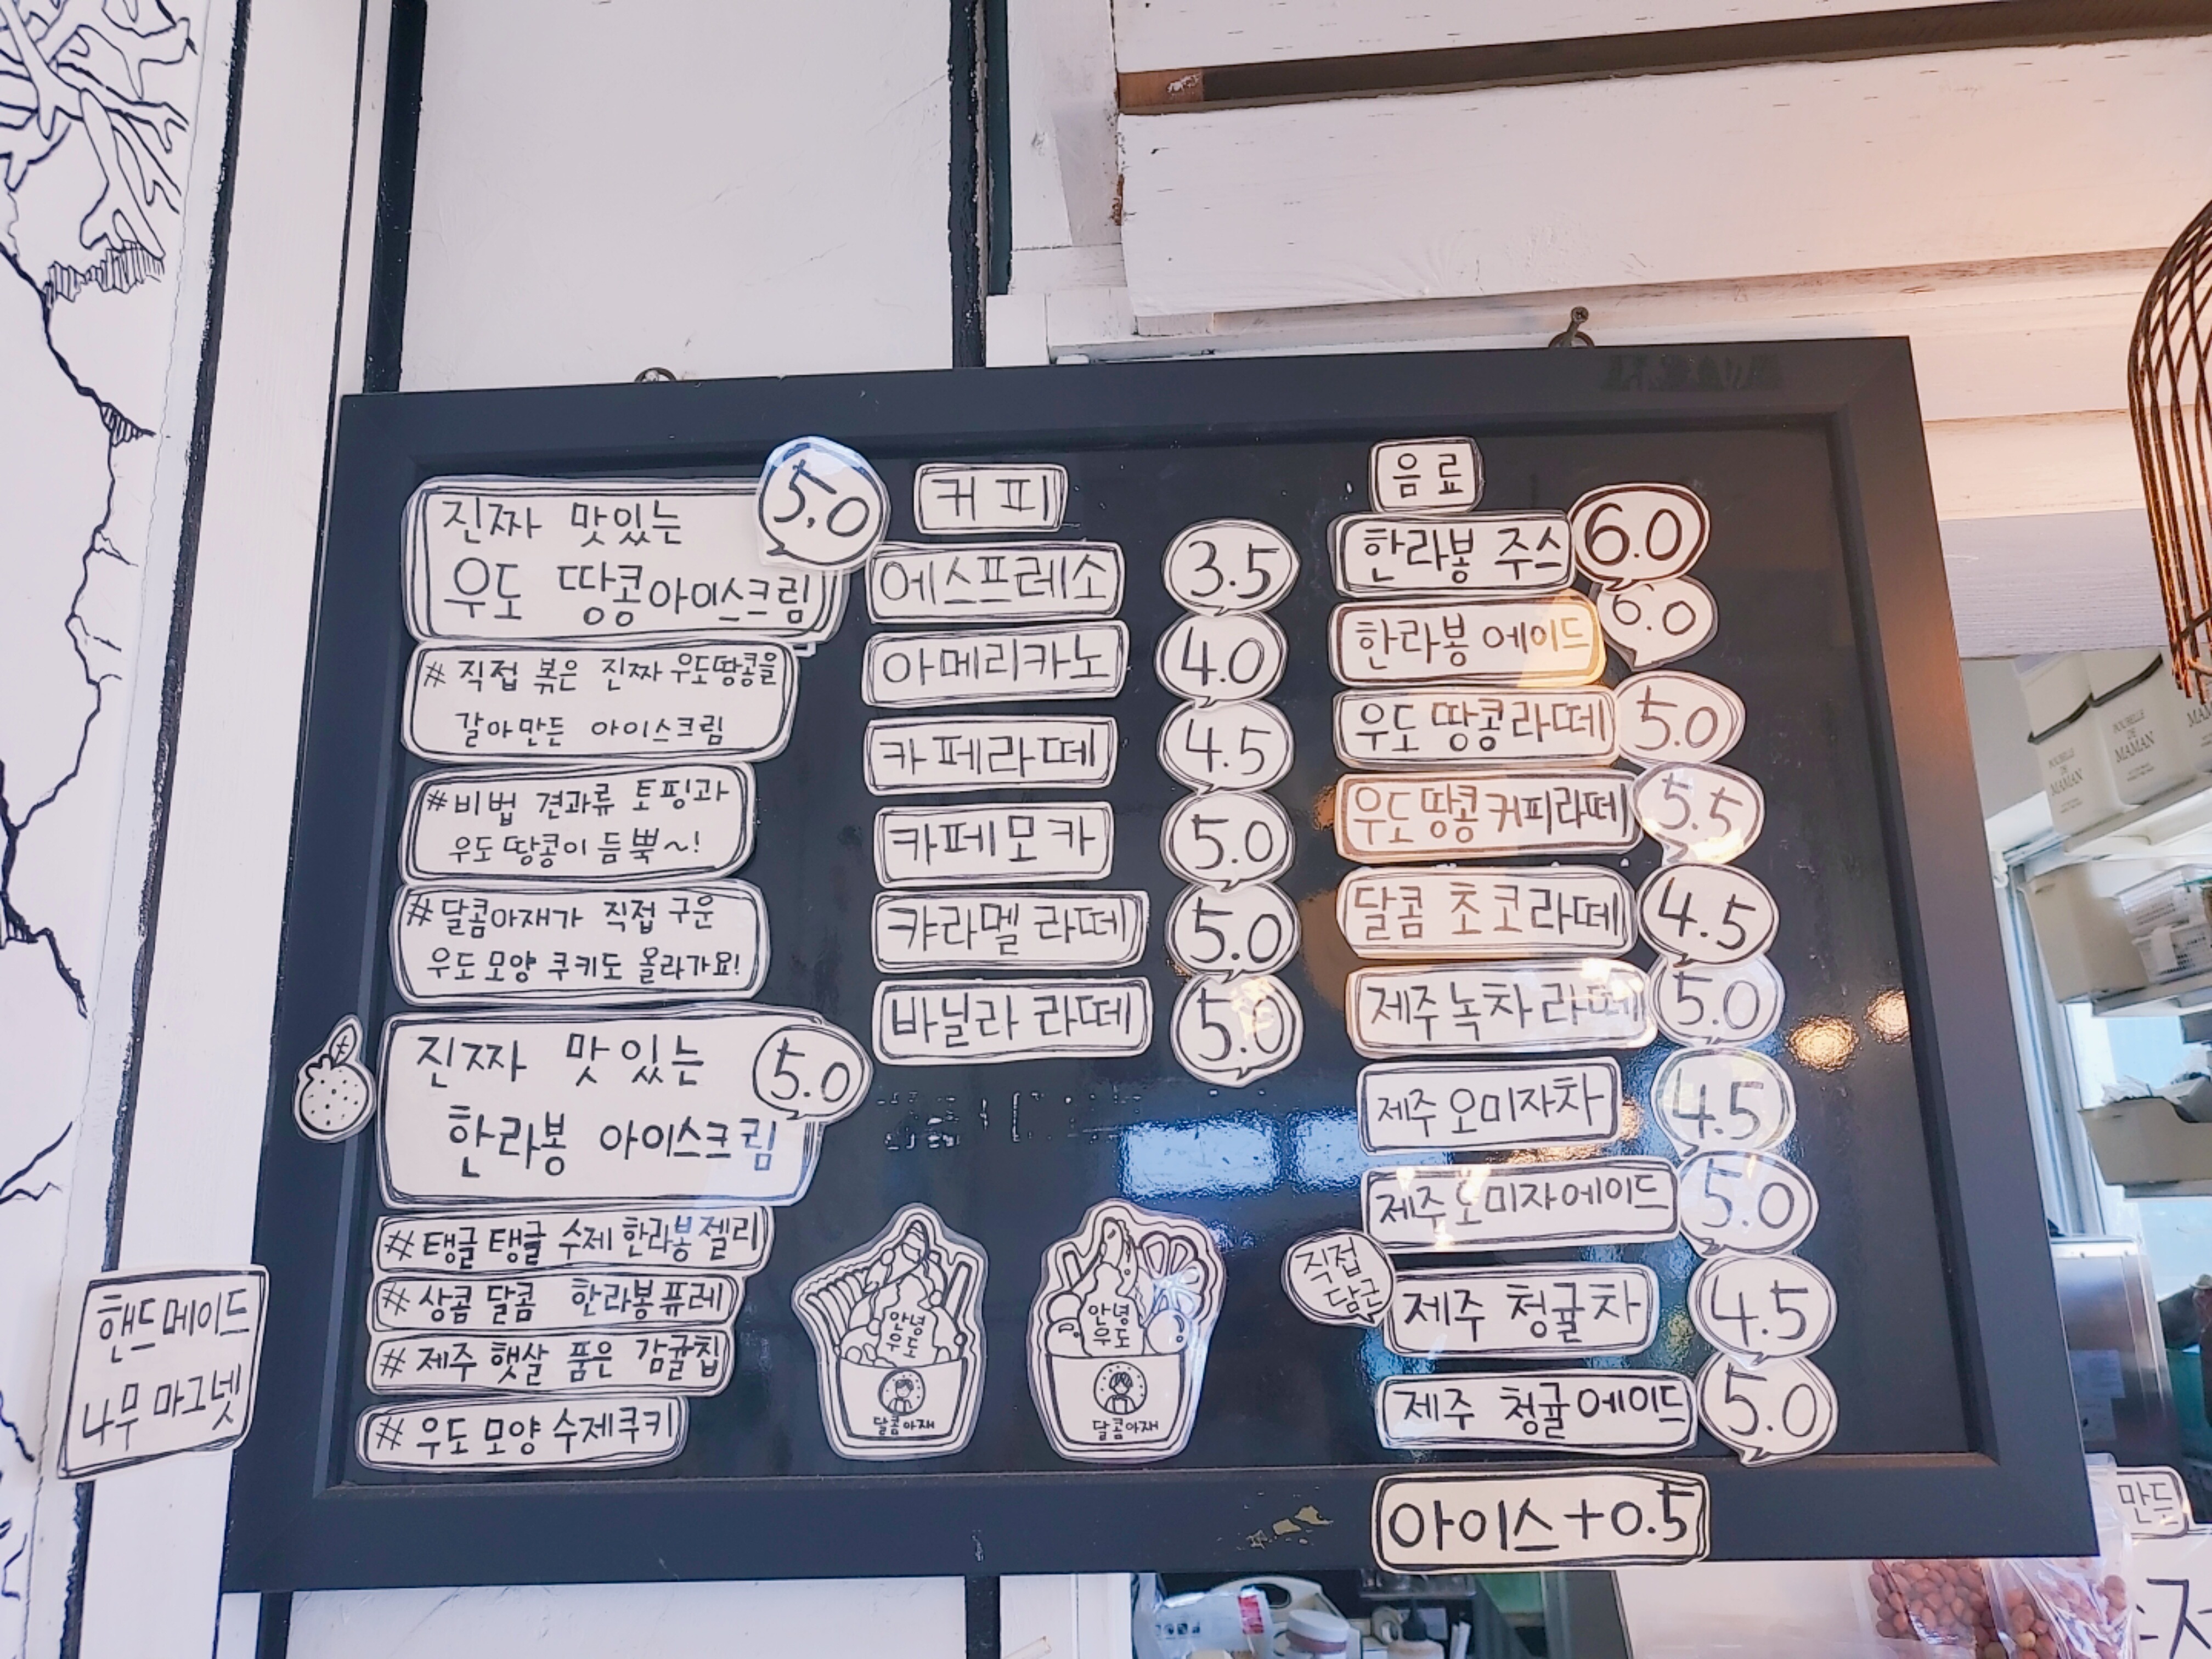 진짜 맛있는
우도 땅콩아이스크림
5.0
# 직접 볶은 진짜 우도땅콩을
갈아만든 아이스크림
#비법 견과류 토핑과
우도 땅콩이 듬뿍~!
#달콤아재가 직접 구운
우도 모양 쿠키도 올라가요!
진짜 맛있는
한라봉 아이스크림
5.0
# 탱글 탱글 수제 한라봉젤리
# 상콤 달콤 한라봉퓨레
# 제주 햇살 품은 감귤칩
# 우도 모양 수제쿠키
핸드메이드
나무 마그넷
커피
에스프레소 3.5
아메리카노 4.0
카페라떼 4.5
카페모카 5.0
캬라멜 라떼 5.0
바닐라 라떼 5.0
안녕
우도
달콤아재
안녕
우도
달콤아재
음료
한라봉 주스 6.0
한라봉 에이드 6.0
우도 땅콩라떼 5.0
우도땅콩커피라떼 5.5
달콤 초코라떼 4.5
제주녹차라떼 5.0
제주오미자차 4.5
제주오미자에이드 5.0
직접
담근
제주 청귤차 4.5
제주 청귤에이드 5.0
아이스+0.5
POUBELLE
DE
MAMAN
POUBELLE
DE
MAMAN
만든